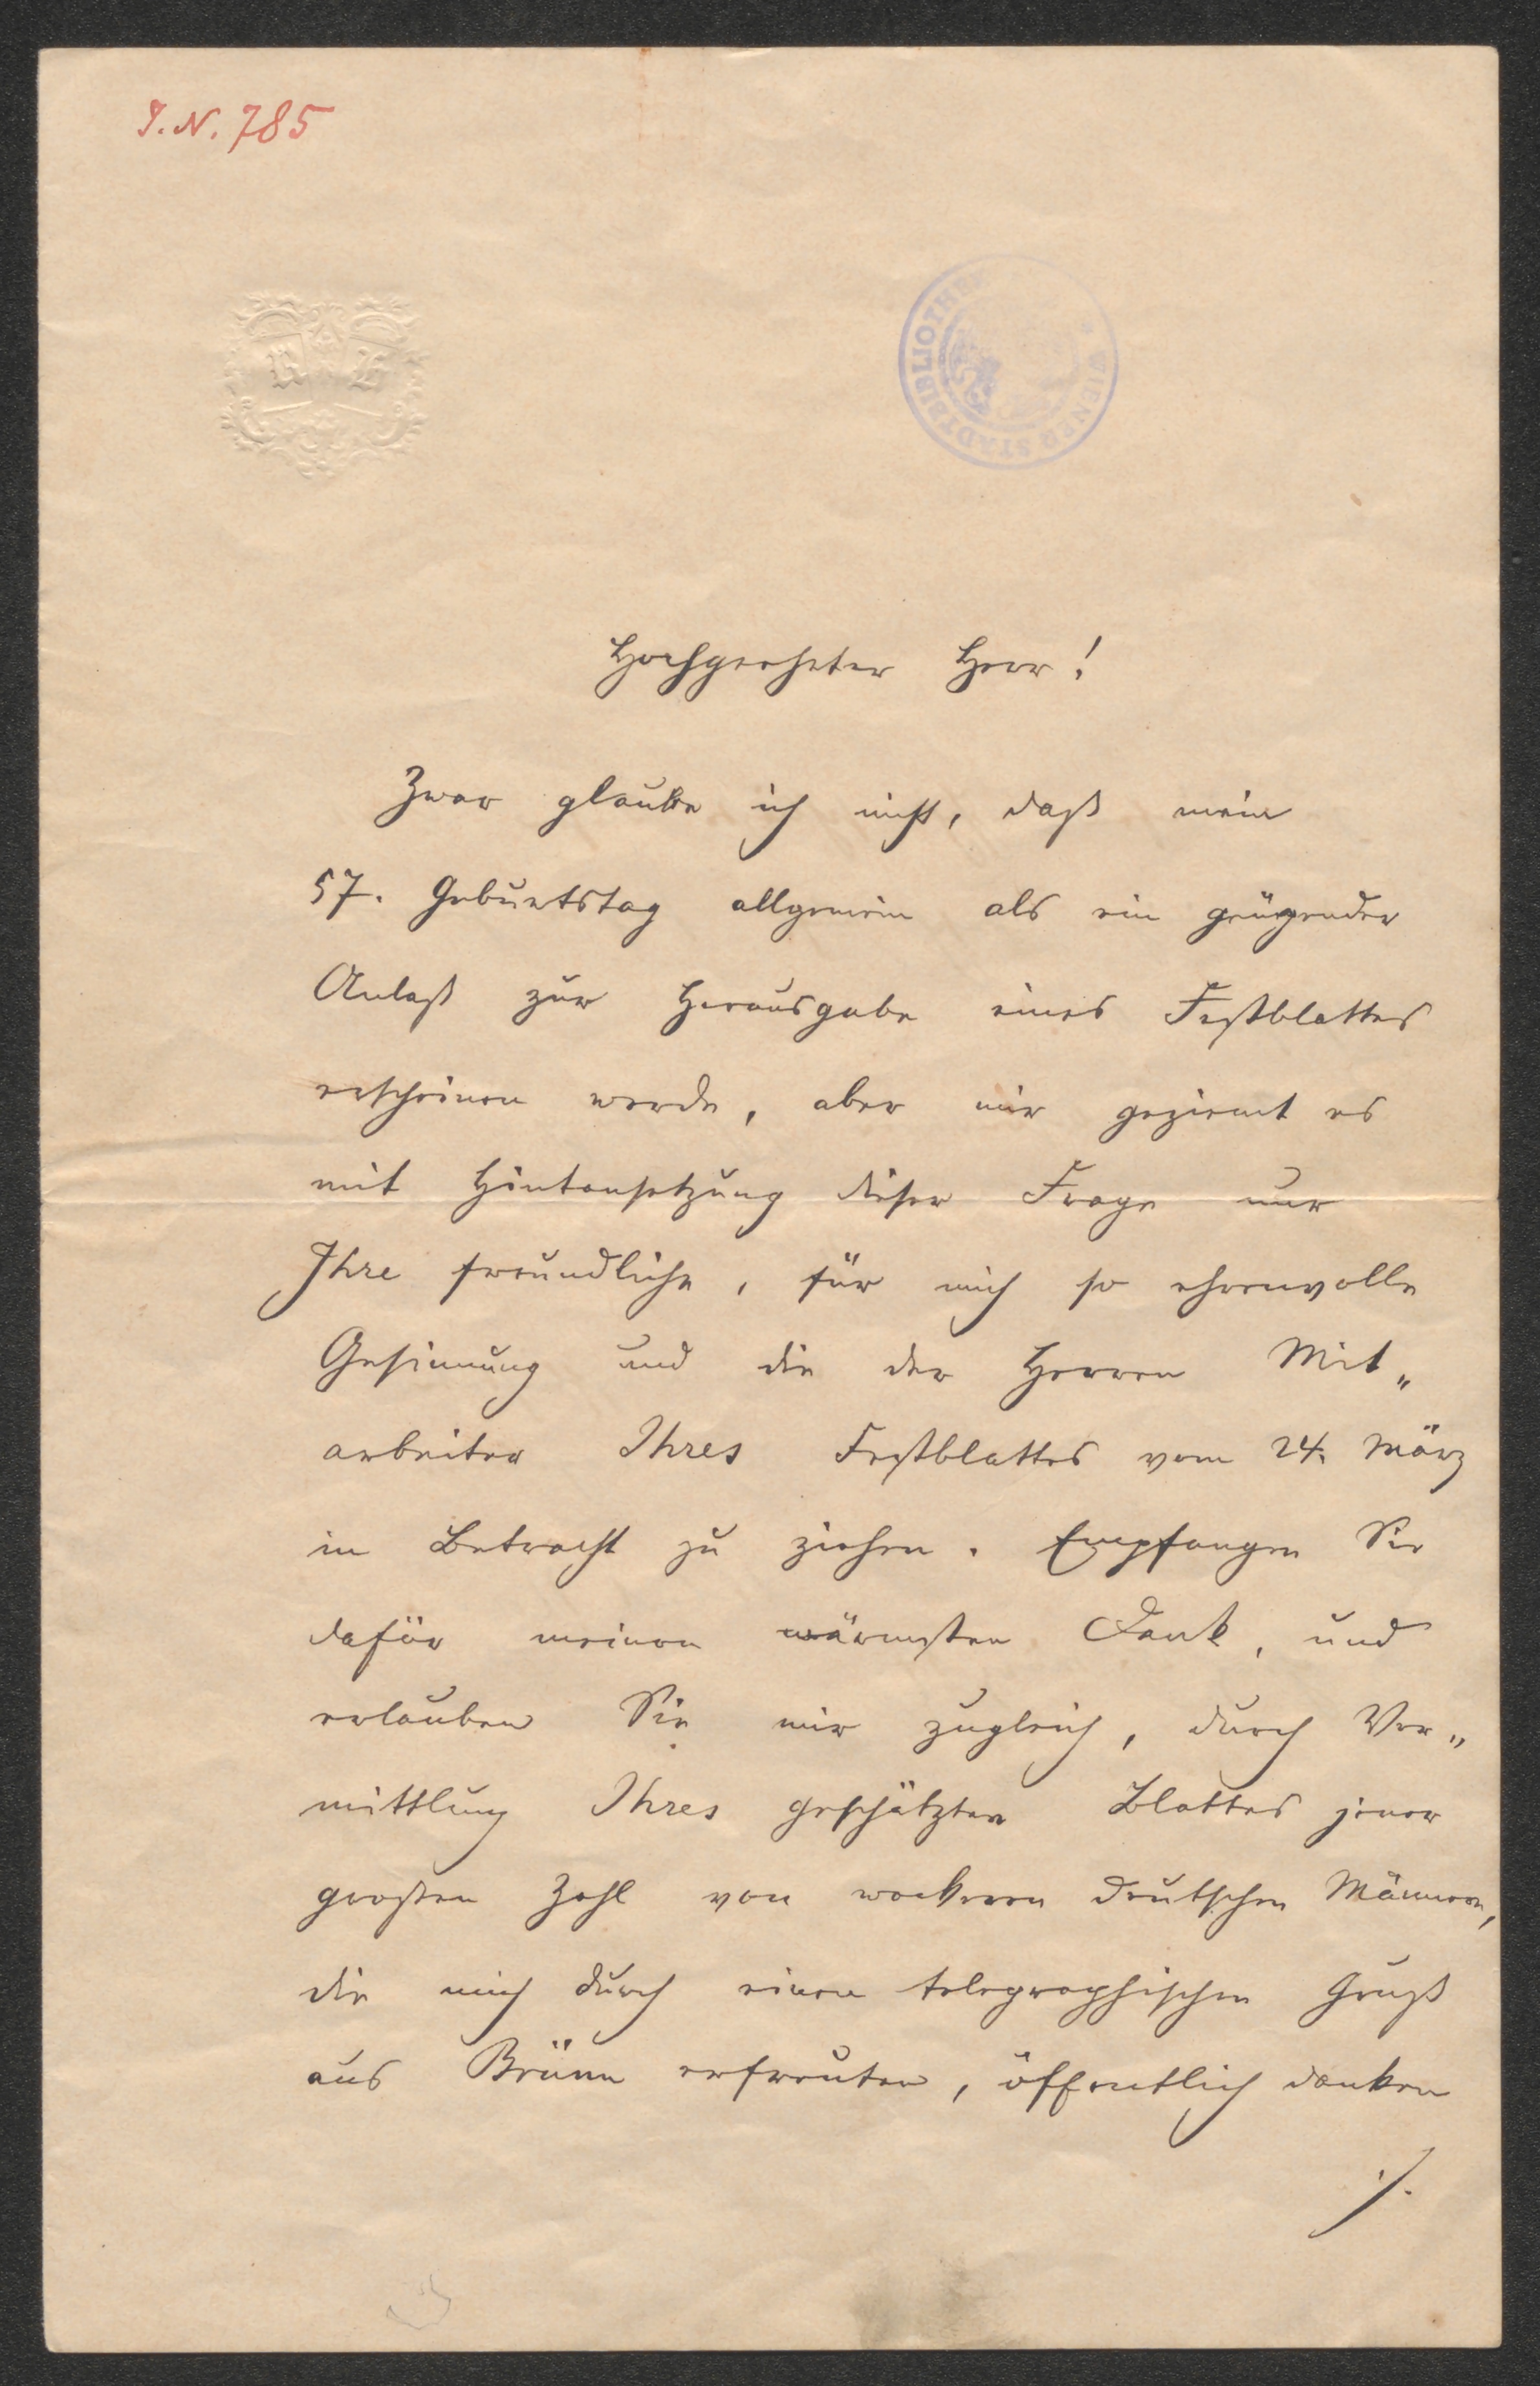 I. N. 785
R H
WIENER STADTBIBLIOTHEK
Hochgeehrter Herr!
Zwar glaube ich nicht, daß mein
57. Geburtstag allgemein als ein genügender
Anlaß zur Herausgabe eines Festblattes
erscheinen werde, aber mir geziemt es
mit Hintansetzung dieser Frage nur
Ihre freundliche, für mich so ehrenvolle
Gesinnung und die der Herren Mit„
arbeiter Ihres Festblattes vom 24. März
in Betracht zu ziehen. Empfangen Sie
dafür meinen wärmsten Dank, und
erlauben Sie mir zugleich, durch Ver„
mittlung Ihres geschätzten Blattes jener
großen Zahl von wackeren deutschen Männern,
die mich durch einen telegraphischen Gruß
aus Brünn erfreuten, öffentlich danken
./.